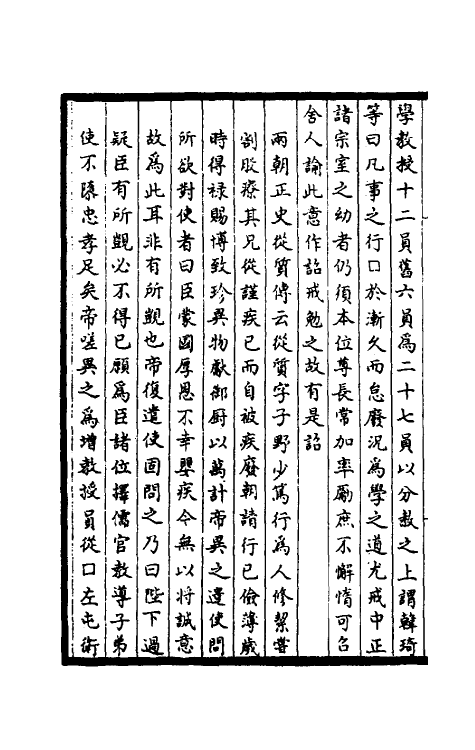 學教授十二員舊六員為二十七員以分教之上謂韓琦
等曰凡事之行口於漸久而怠廢況為學之道尤戒中正
諸宗室之幼者仍須本位尊長常加率勵庶不懈惰可召
舍人諭此意作詔戒勉之故有是詔
兩朝正史從質傳云從質字子野少篤行為人修潔嘗
割股療其兄從謹疾已而自被疾廢朝請行已儉薄歲
時得祿賜博致珍異物獻御厨以萬計帝異之遣使問
所欲對使者曰臣蒙國厚恩不幸嬰疾今無以將誠意
故為此耳非有所覬也帝復遣使固問之乃曰陛下過
疑臣有所覬必不得已願為臣諸位擇儒官教導子弟
使不隳忠孝足矣帝嗟異之為增教授員從口左屯衛